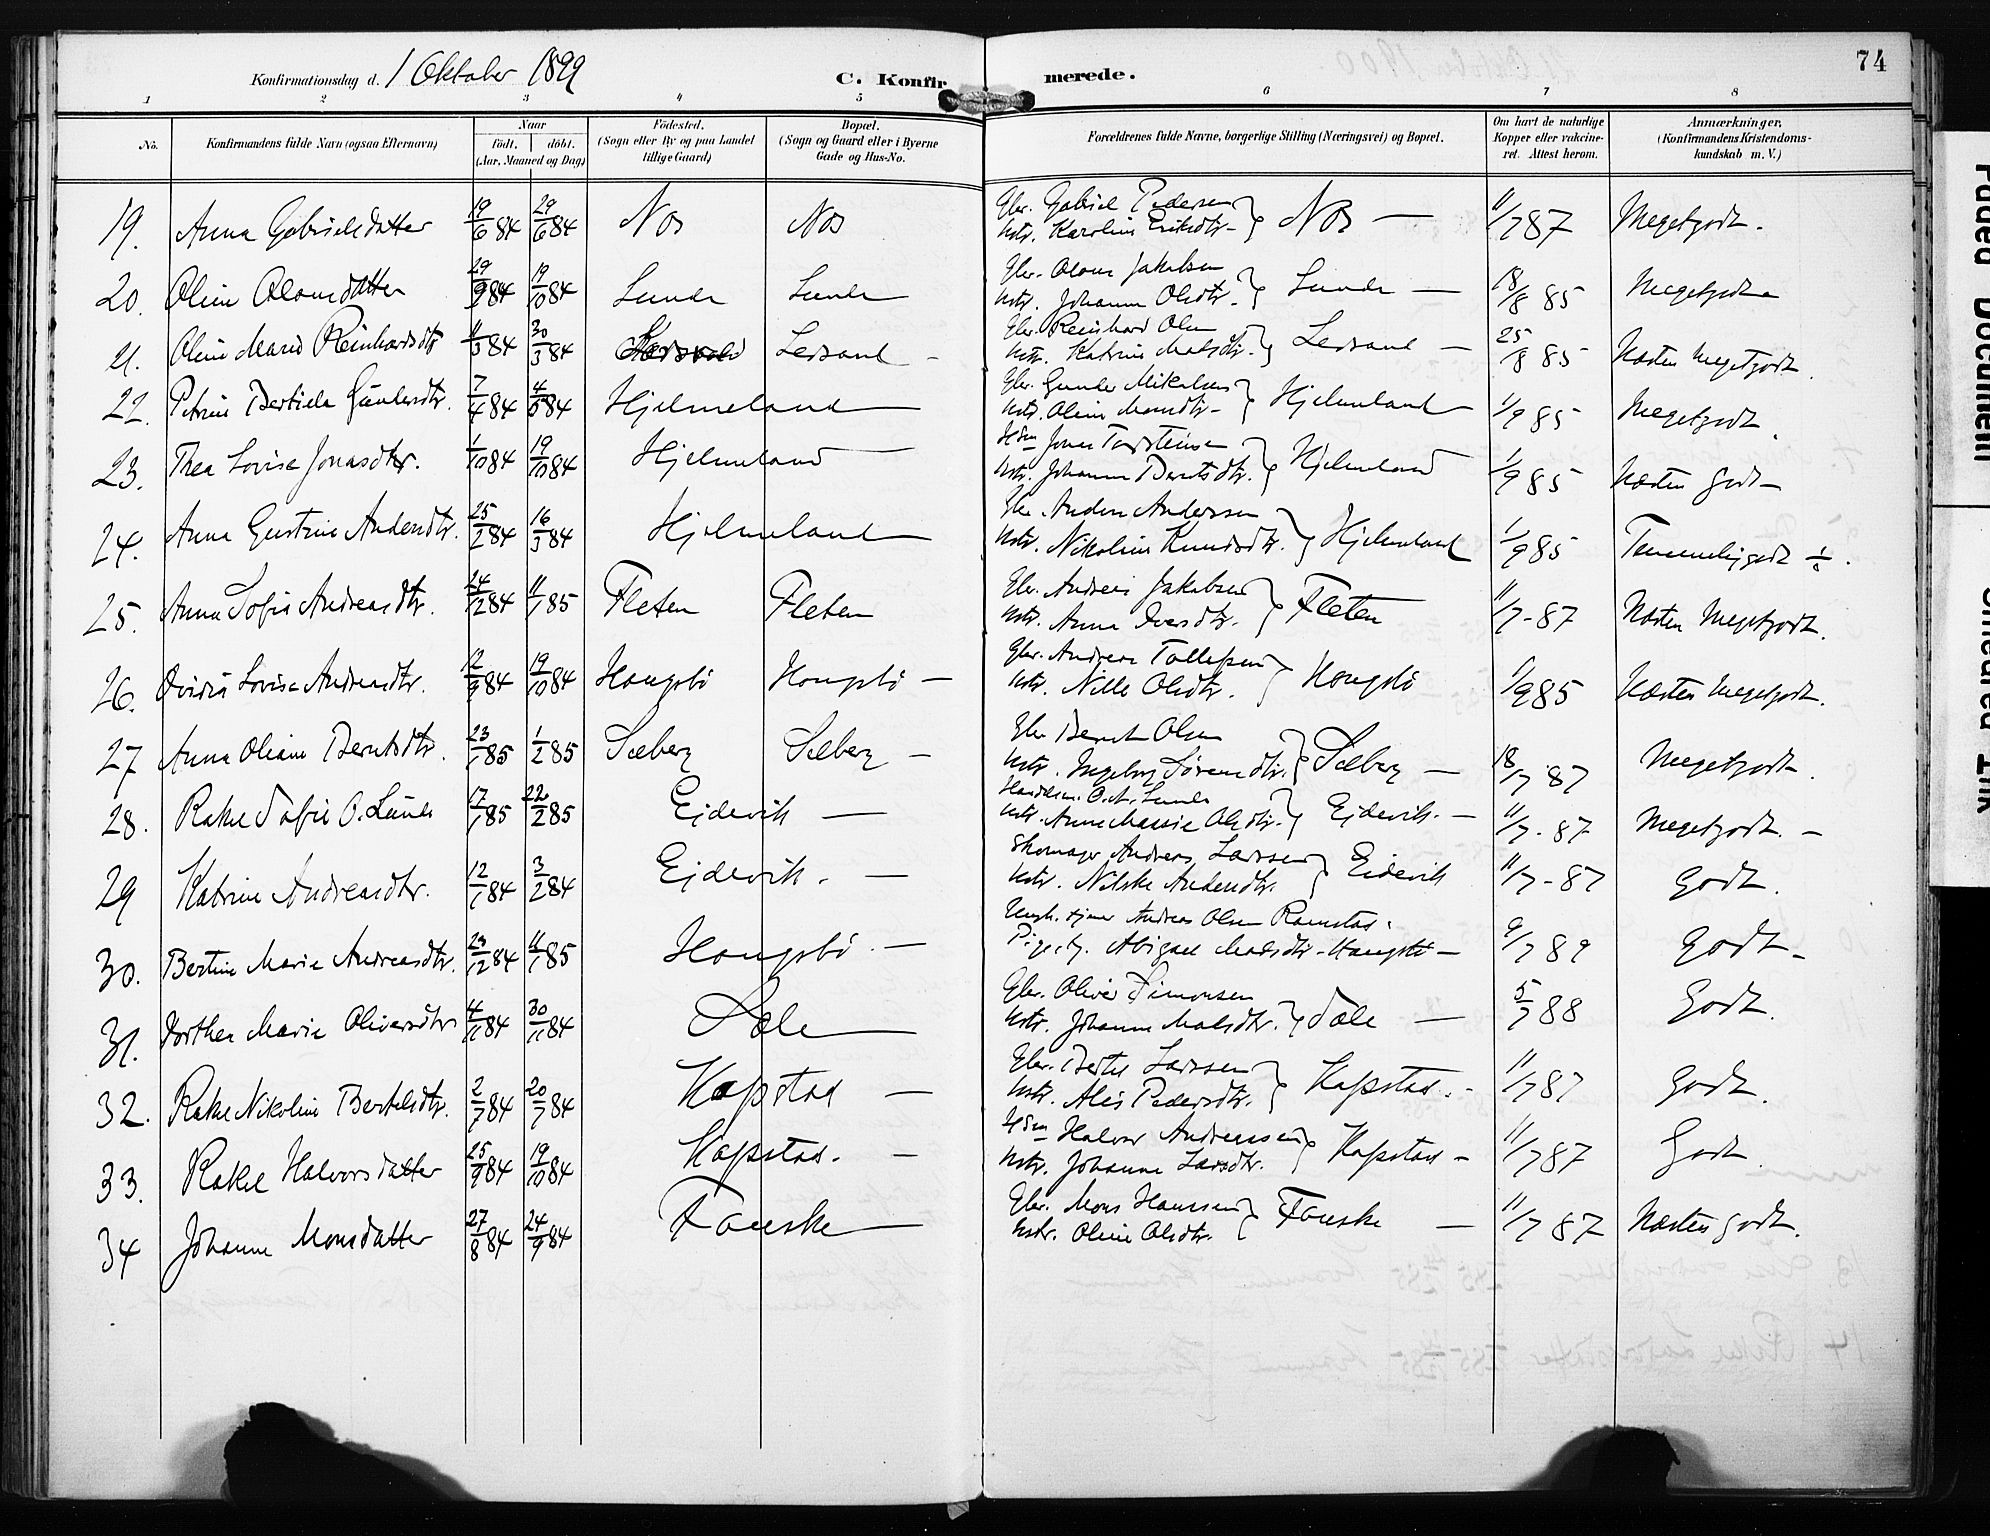 Konfirmationsdag d. 1 Oktober 1899
C. Konfirmerede.
74
1 2 3 4 5 6 7 8
No. Konfirmandens fulde Navn (ogsaa Efternavn) Naar født, døbt. (Aar, Maaned og Dag) Fødested. (Sogn eller By og paa Landet tillige Gaard) Bopæl. (Sogn og Gaard eller i Byerne Gade og Hus-No. Forældrenes fulde Navne, borgerlige Stilling (Næringsvei) og Bopæl. Om havt de naturlige Kopper eller vakcineret. Attest herom. Anmærkninger. (Konfirmandens Kristendomskundskab m. V.)
19. Anna Gabrielsdatter 19/6 84 29/6 84 Nos Nos Gbr. Gabriel Pedersen Hstr. Karoline Eriksdtr. Nos 11/7 87 Megetgodt.
20. Oline Olausdatter 29/9 84 19/10 84 Lunde Lunde Gbr. Olaus Jakobsen Hstr. Johanne Olsdtr. Lunde 18/8 85 Megetgodt
21. Oline Marie Reinhardsdtr 11/3 84 30/3 84 Ledsaul Gbr. Reinhard Olsen Hstr. Katrine Madsdtr. Ledsaul 25/8 85 Næsten Megetgodt.
22. Petrine Bertiela Gundersdtr. 7/4 84 4/5 84 Hjelmeland Gbr. Gunder Mikalsen Hstr. Oline Monsdtr. Hjelmeland 1/9 85 Megetgodt.
23. Thea Lovise Jonasdtr. 1/10 84 19/10 84 Hjelmeland Hsm Jonas Torsteinsen Hstr. Johanne Berntsdtr. Hjelmeland 1/9 85 Næsten Godt
24. Anna Gurine Andersdtr. 25/2 84 16/3 84 Hjelmeland Gbr. Anders Anderssen Hstr. Nikoline Knudsdtr. Hjelmeland 1/9 85 Temmeliggodt
25. Anna Sofie Andreasdtr. 24/12 84 11/1 85 Fleten Fleten Gbr. Andreas Jakobsen Hstr. Anna Iversdtr. Fleten 11/7 87 Næsten Megetgodt.
26. Ovidia Lovise Andreasdtr. 12/9 84 19/10 84 Haugsbö Haugsbö Gbr. Andreas Tollefsen Hstr. Nille Olsdtr. Haugsbö 1/9 85 Næsten Megetgodt.
27 Anna Oliane Berntsdtr. 23/1 85 1/2 85 Solberg Solberg Gbr Bernt Olsen Hstr. Ingeborg Sörensdtr. Solberg 18/7 87 Megetgodt.
28. Rakel Sofie O. Lunde 17/1 85 22/2 85 Eidevik Handelsm. O. A. Lunde Hstr. Anne Massie Olsdtr. Eidevik. 11/7 87 Megetgodt.
29 Katrine Andreasdtr. 12/1 84 3/2 84 Eidevik. Skomager Andreas Larssen Hstr. Nilske Andersdtr. Eidevik 11/7 87 Godt.
30. Bertine Marie Andreasdtr. 29/12 84 11/1 85 Haugsbö. Ungk. tjener Andreas Olsen Ramstad. Pige tj. Abigael Madsdtr. Haugsbö 9/7 89 Godt.
31. Dorthea Marie Oliversdtr 4/11 84 30/11 84 Dale Gbr. Oliver Simonsen Hstr. Johanne Madsdtr. Dale 5/7 88 Godt.
32. Rakel Nikoline Bertelsdtr. 2/7 84 20/7 84 Kapstad Gbr. Bertel Larssen Hstr. Alis Pedersdtr. Kapstad. 11/7 87 Godt.
33. Rakel Halvorsdatter 25/9 84 19/10 84 Kapstad. Hsm Halvor Andreassen Hstr. Johanne Larsdtr. Kapstad 11/7 87 Godt.
34 Johanne Monsdatter 27/8 84 24/9 84 Fauske Gbr. Mons Hanssen Hstr. Oline Olsdtr. Fauske 11/7 87 Næsten godt.
Faded Document
Smeared Ink